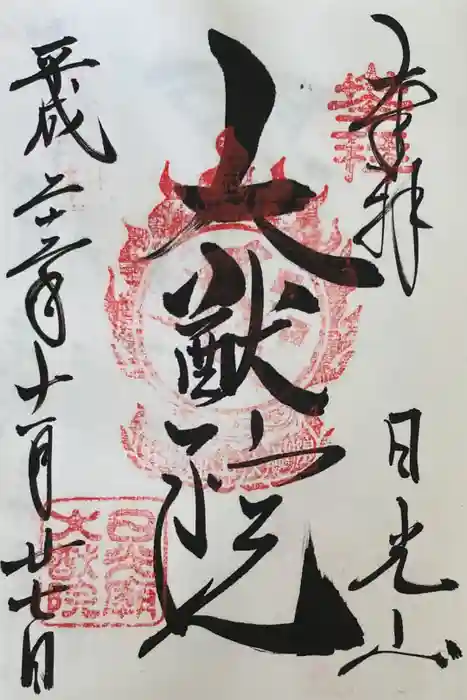 奉拝
日光山
大猷院
平成二十二年十一月廿七日
日光山
大猷院